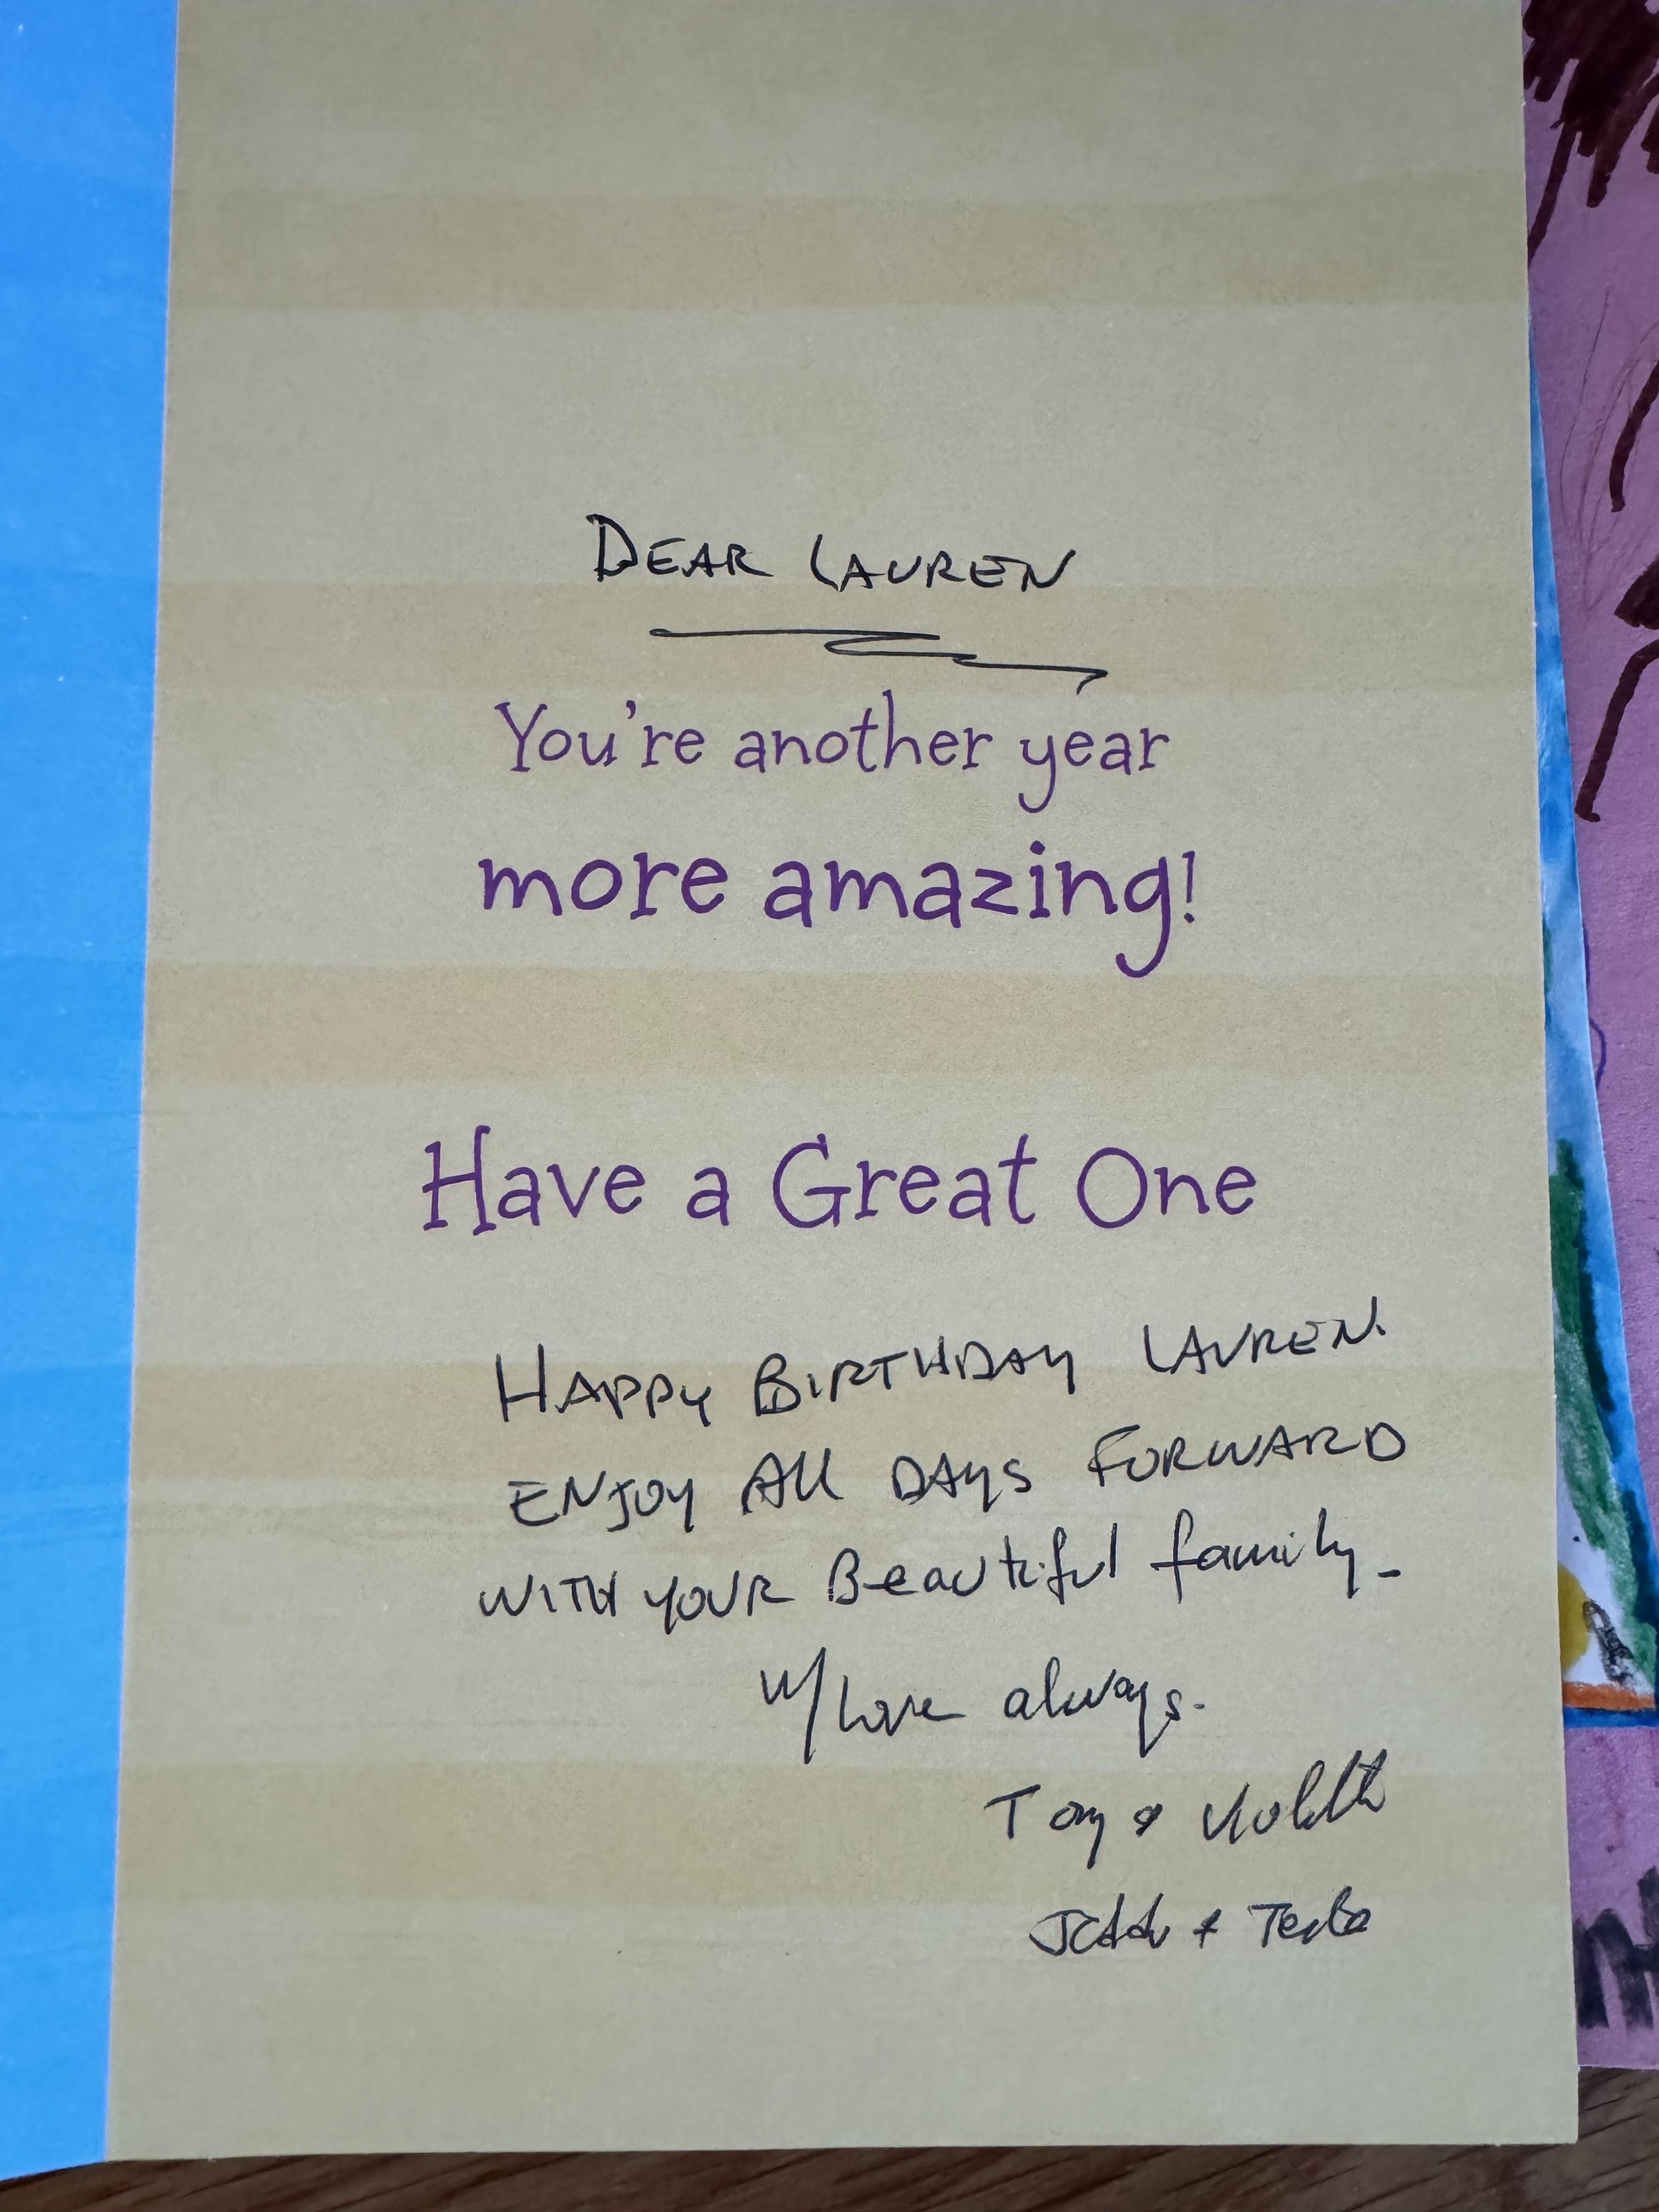 DEAR LAUREN
You're another year
more amazing!
Have a Great One
HAPPY BIRTHDAY LAUREN.
ENJOY All DAYS FORWARD
WITH YOUR Beautiful family-
w/ Love always.
Tony &